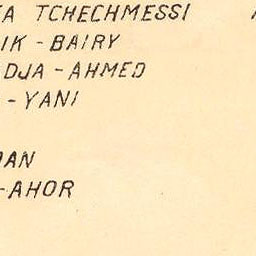 TCHECHMESSI
IK - BAIRY
DJA - AHMED
- YANI
-AHOR